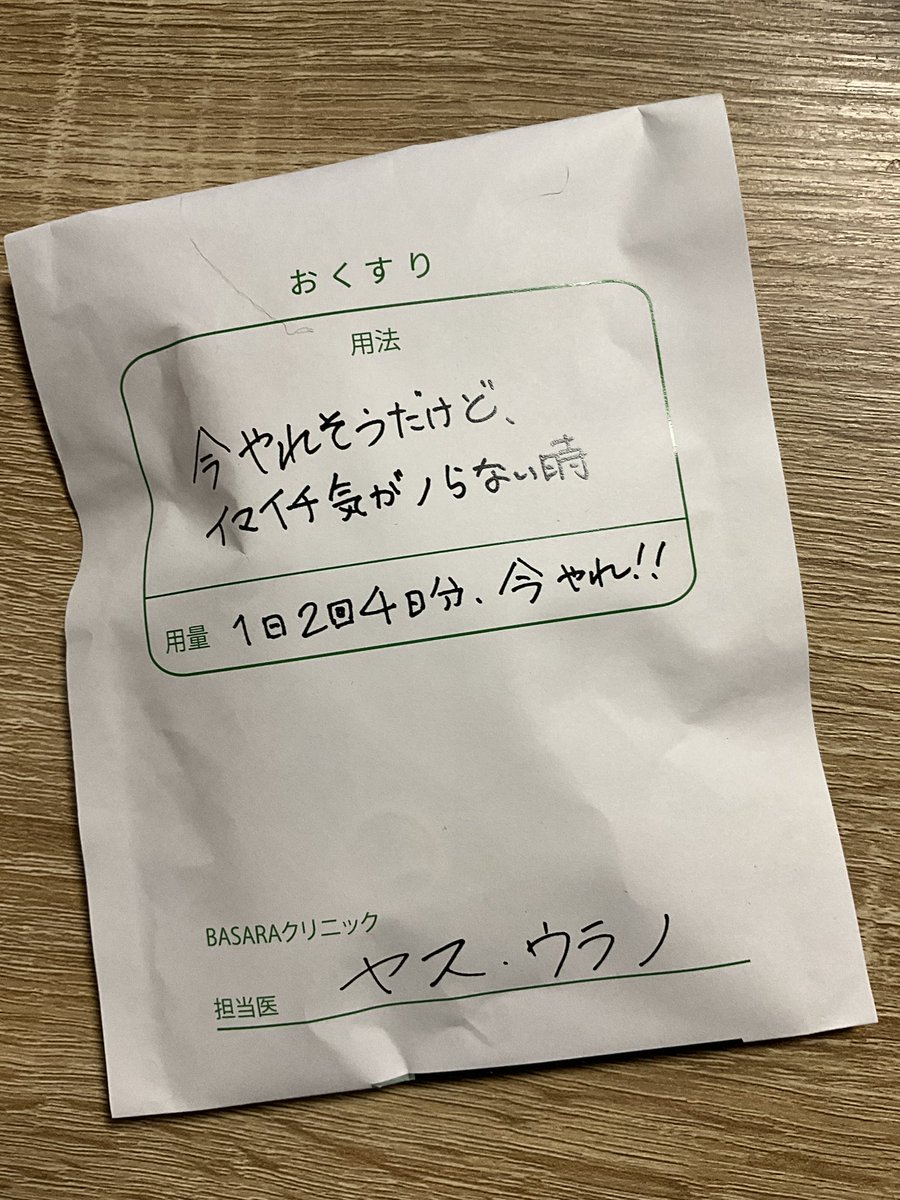 おくすり
用法
今やれそうだけど、
イマイチ気がノらない時
用量 1日2回4日分、今やれ!!
BASARAクリニック
担当医 ヤス・ウラノ